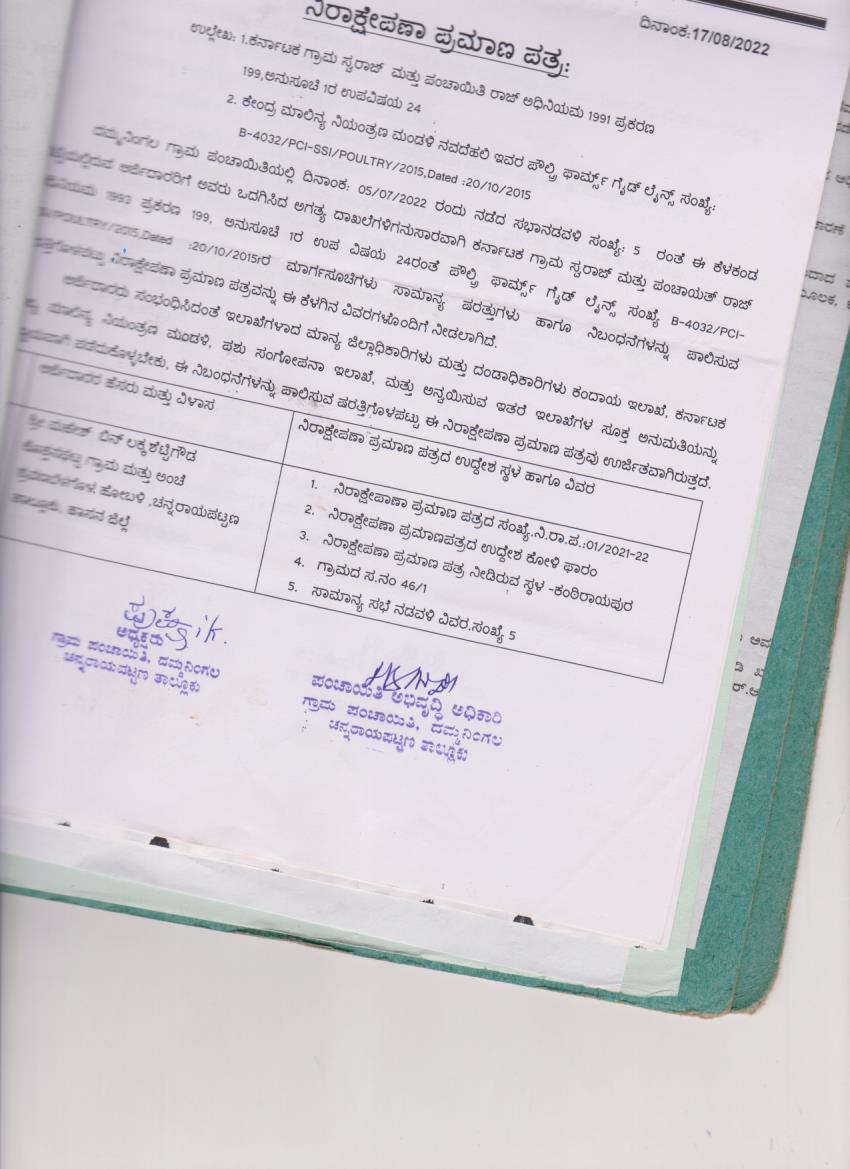 ದಿನಾಂಕ:17/08/2022
ನಿರಾಕ್ಷೇಪಣಾ ಪ್ರಮಾಣ ಪತ್ರ:
ಉಲ್ಲೇಖ: 1.ಕರ್ನಾಟಕ ಗ್ರಾಮ ಸ್ವರಾಜ್ ಮತ್ತು ಪಂಚಾಯಿತಿ ರಾಜ್ ಅಧಿನಿಯಮ 1991 ಪ್ರಕರಣ
199,ಅನುಸೂಚಿ 1ರ ಉಪವಿಷಯ 24
2. ಕೇಂದ್ರ ಮಾಲಿನ್ಯ ನಿಯಂತ್ರಣ ಮಂಡಳಿ ನವದೆಹಲಿ ಇವರ ಪೌಲ್ಟ್ರಿ ಫಾರ್ಮ್ಸ್ ಗೈಡ್ ಲೈನ್ಸ್ ಸಂಖ್ಯೆ:
B-4032/PCI-SSI/POULTRY/2015,Dated :20/10/2015
ದಮ್ಮನಿಂಗಲ ಗ್ರಾಮ ಪಂಚಾಯಿತಿಯಲ್ಲಿ ದಿನಾಂಕ: 05/07/2022 ರಂದು ನಡೆದ ಸಭಾನಡವಳಿ ಸಂಖ್ಯೆ: 5 ರಂತೆ ಈ ಕೆಳಕಂಡ
ಅರ್ಜಿದಾರರಿಗೆ ಅವರು ಒದಗಿಸಿದ ಅಗತ್ಯ ದಾಖಲೆಗಳಿಗನುಸಾರವಾಗಿ ಕರ್ನಾಟಕ ಗ್ರಾಮ ಸ್ವರಾಜ್ ಮತ್ತು ಪಂಚಾಯತ್ ರಾಜ್
1993 ಪ್ರಕರಣ 199, ಅನುಸೂಚಿ 1ರ ಉಪ ವಿಷಯ 24ರಂತೆ ಪೌಲ್ಟ್ರಿ ಫಾರ್ಮ್ಸ್ ಗೈಡ್ ಲೈನ್ಸ್ ಸಂಖ್ಯೆ B-4032/PCI-
/POULTRY/2015,Dated :20/10/2015ರ ಮಾರ್ಗಸೂಚಿಗಳು ಸಾಮಾನ್ಯ ಷರತ್ತುಗಳು ಹಾಗೂ ನಿಬಂಧನೆಗಳನ್ನು ಪಾಲಿಸುವ
ನಿರಾಕ್ಷೇಪಣಾ ಪ್ರಮಾಣ ಪತ್ರವನ್ನು ಈ ಕೆಳಗಿನ ವಿವರಗಳೊಂದಿಗೆ ನೀಡಲಾಗಿದೆ.
ಅರ್ಜಿದಾರರು ಸಂಭಂಧಿಸಿದಂತೆ ಇಲಾಖೆಗಳಾದ ಮಾನ್ಯ ಜಿಲ್ಲಾಧಿಕಾರಿಗಳು ಮತ್ತು ದಂಡಾಧಿಕಾರಿಗಳು ಕಂದಾಯ ಇಲಾಖೆ, ಕರ್ನಾಟಕ
ಮಾಲಿನ್ಯ ನಿಯಂತ್ರಣ ಮಂಡಳಿ, ಪಶು ಸಂಗೋಪನಾ ಇಲಾಖೆ, ಮತ್ತು ಅನ್ವಯಿಸುವ ಇತರೆ ಇಲಾಖೆಗಳ ಸೂಕ್ತ ಅನುಮತಿಯನ್ನು
ಪಡೆದುಕೊಳ್ಳಬೇಕು, ಈ ನಿಬಂಧನೆಗಳನ್ನು ಪಾಲಿಸುವ ಷರತ್ತಿಗೊಳಪಟ್ಟು ಈ ನಿರಾಕ್ಷೇಪಣಾ ಪ್ರಮಾಣ ಪತ್ರವು ಊರ್ಜಿತವಾಗಿರುತ್ತದೆ.
ಅರ್ಜಿದಾರರ ಹೆಸರು ಮತ್ತು ವಿಳಾಸ
ನಿರಾಕ್ಷೇಪಣಾ ಪ್ರಮಾಣ ಪತ್ರದ ಉದ್ದೇಶ ಸ್ಥಳ ಹಾಗೂ ವಿವರ
ಶ್ರೀ ಮಹೇಶ್ ಬಿನ್ ಲಕ್ಕಶೆಟ್ಟಿಗೌಡ
ಗ್ರಾಮ ಮತ್ತು ಅಂಚೆ
ಹೋಬಳಿ ,ಚನ್ನರಾಯಪಟ್ಟಣ
ತಾಲ್ಲೂಕು, ಹಾಸನ ಜಿಲ್ಲೆ
1. ನಿರಾಕ್ಷೇಪಾಣಾ ಪ್ರಮಾಣ ಪತ್ರದ ಸಂಖ್ಯೆ.ನಿ.ರಾ.ಪ.:01/2021-22
2. ನಿರಾಕ್ಷೇಪಣಾ ಪ್ರಮಾಣಪತ್ರದ ಉದ್ದೇಶ ಕೋಳಿ ಫಾರಂ
3. ನಿರಾಕ್ಷೇಪಣಾ ಪ್ರಮಾಣ ಪತ್ರ ನೀಡಿರುವ ಸ್ಥಳ -ಕಂಠಿರಾಯಪುರ
4. ಗ್ರಾಮದ ಸ.ನಂ 46/1
5. ಸಾಮಾನ್ಯ ಸಭೆ ನಡವಳಿ ವಿವರ.ಸಂಖ್ಯೆ 5
ಅಧ್ಯಕ್ಷರು
ಗ್ರಾಮ ಪಂಚಾಯಿತಿ, ದಮ್ಮನಿಂಗಲ
ಚನ್ನರಾಯಪಟ್ಟಣ ತಾಲ್ಲೂಕು
ಪಂಚಾಯಿತಿ ಅಭಿವೃದ್ಧಿ ಅಧಿಕಾರಿ
ಗ್ರಾಮ ಪಂಚಾಯಿತಿ, ದಮ್ಮನಿಂಗಲ
ಚನ್ನರಾಯಪಟ್ಟಣ ತಾಲ್ಲೂಕು